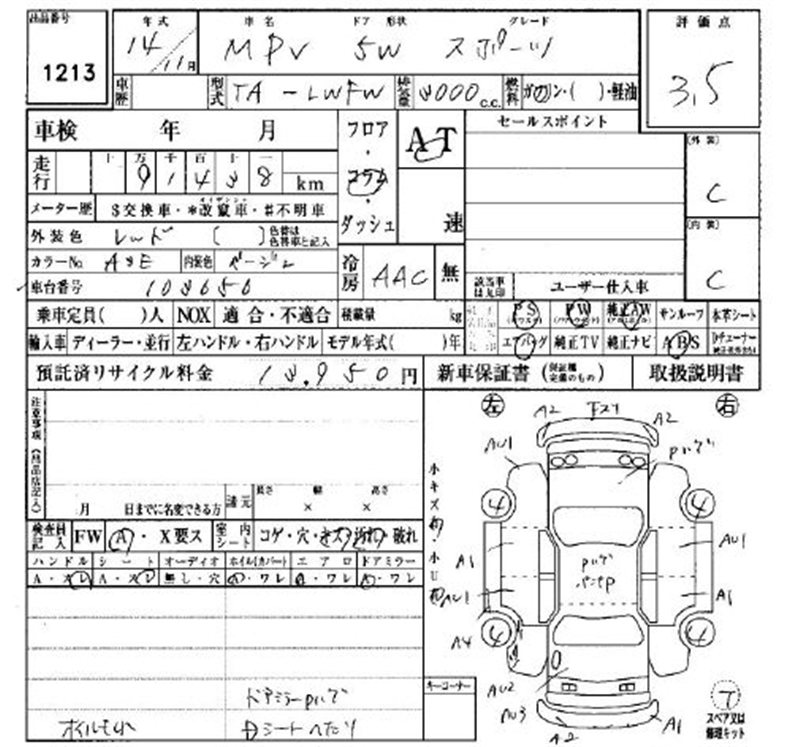 出品番号
1213
年式
14/11月
車名 ドア 形状 グレード
MPV 5W スポーツ
評価点
3.5
車歴
型式 TA-LWFW
排気量 3000 c.c.
燃料 ガソリン・( )・軽油
車検 年 月
フロア・コラム・ダッシュ
AT
速
セールスポイント
(外装)
C
(内装)
C
走行 十 万 千 百 十 一
91438 km
メーター歴 $交換車・*改竄車・#不明車
外装色 レッド ( ) 色替は色替車と記入
カラーNo. A3E 内装色 ベージュ
車台番号 103650
冷房 AAC 無
該当車は丸印 ユーザー仕入車
乗車定員( )人 NOX 適合・不適合 積載量 kg
PS PW 純正AW サンルーフ 本革シート
輸入車 ディーラー・並行 左ハンドル・右ハンドル モデル年式( )年
エアバッグ 純正TV 純正ナビ ABS
預託済リサイクル料金 13,950円
新車保証書 (保証継承完備のもの) 取扱説明書
注意事項(出品店記入)
月 日までに名変できる方
諸元 長さ × 幅 × 高さ
検査員記入 FW A・X要ス 室内シート コゲ・穴・キズ・汚れ・破れ
ハンドル シート オーディオ ホイル(カバー) エアロ ドアミラー
A・スレ A・スレ 無し・穴 A・ワレ A・ワレ A・ワレ
ドアミラーPハゲ
オイルもれ Dシートへたり
左 右
A2 下スリ A2
AU1 Pハゲ
小キズ有 小U有
4 4
A1 AU1
Pハゲ
AU1 A1
A4 4 4
AU2
AU3
A2 A1
キーコーナー
T
スペア又は修理キット